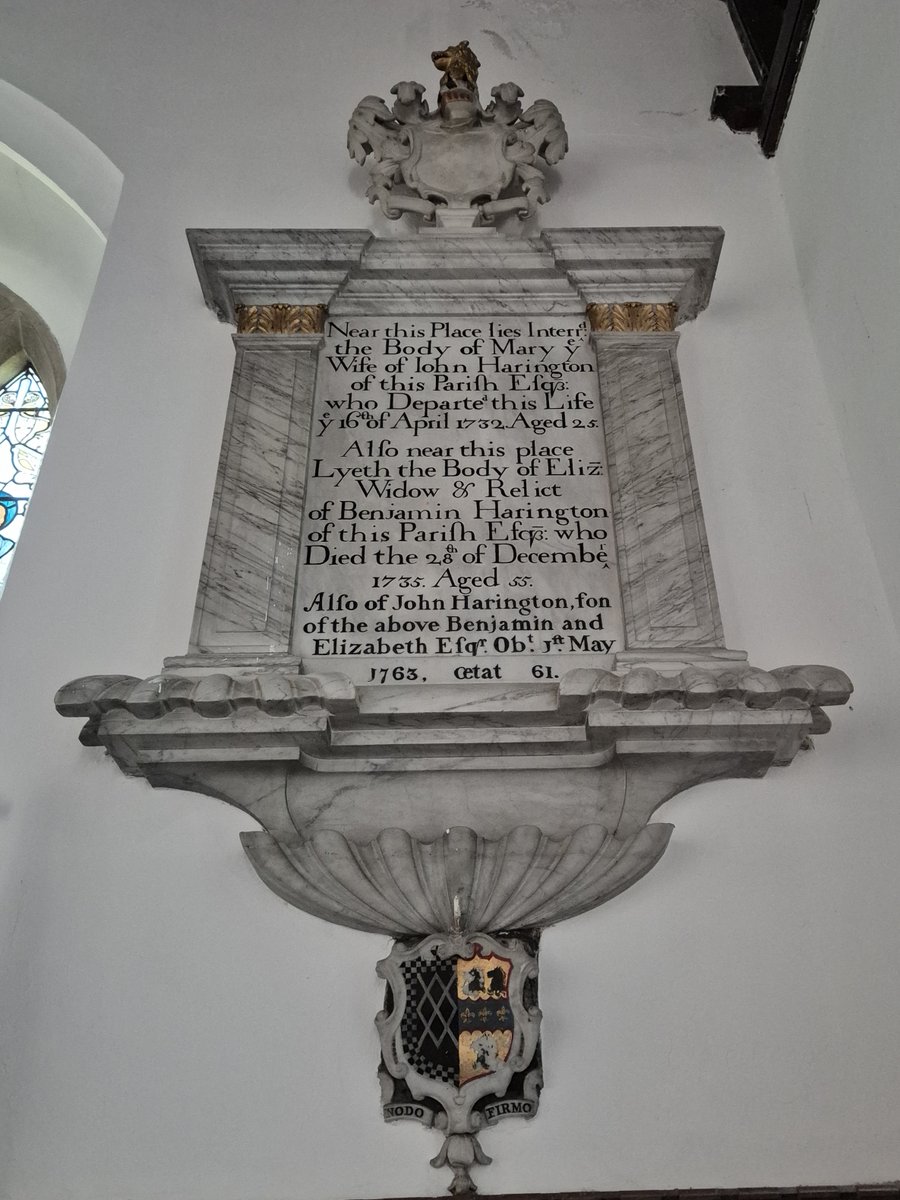 Near this Place lies Interr:ᵈ
the Body of Mary yᵉ
Wife of Iohn Harington
of this Pariſh Eſqꝫ:
who Departeᵈ this Life
yᵉ 16ᵗʰ of April 1732. Aged 25.
Alſo near this place
Lyeth the Body of Eliz̄:
Widow & Relict
of Benjamin Harington
of this Pariſh Eſqꝫ: who
Died the 28ᵗʰ of Decembeʳ
1735. Aged 55.
Alſo of John Harington, ſon
of the above Benjamin and
Elizabeth Eſqʳ. Obᵗ. 1ſᵗ. May
1763, œtat 61.
NODO FIRMO